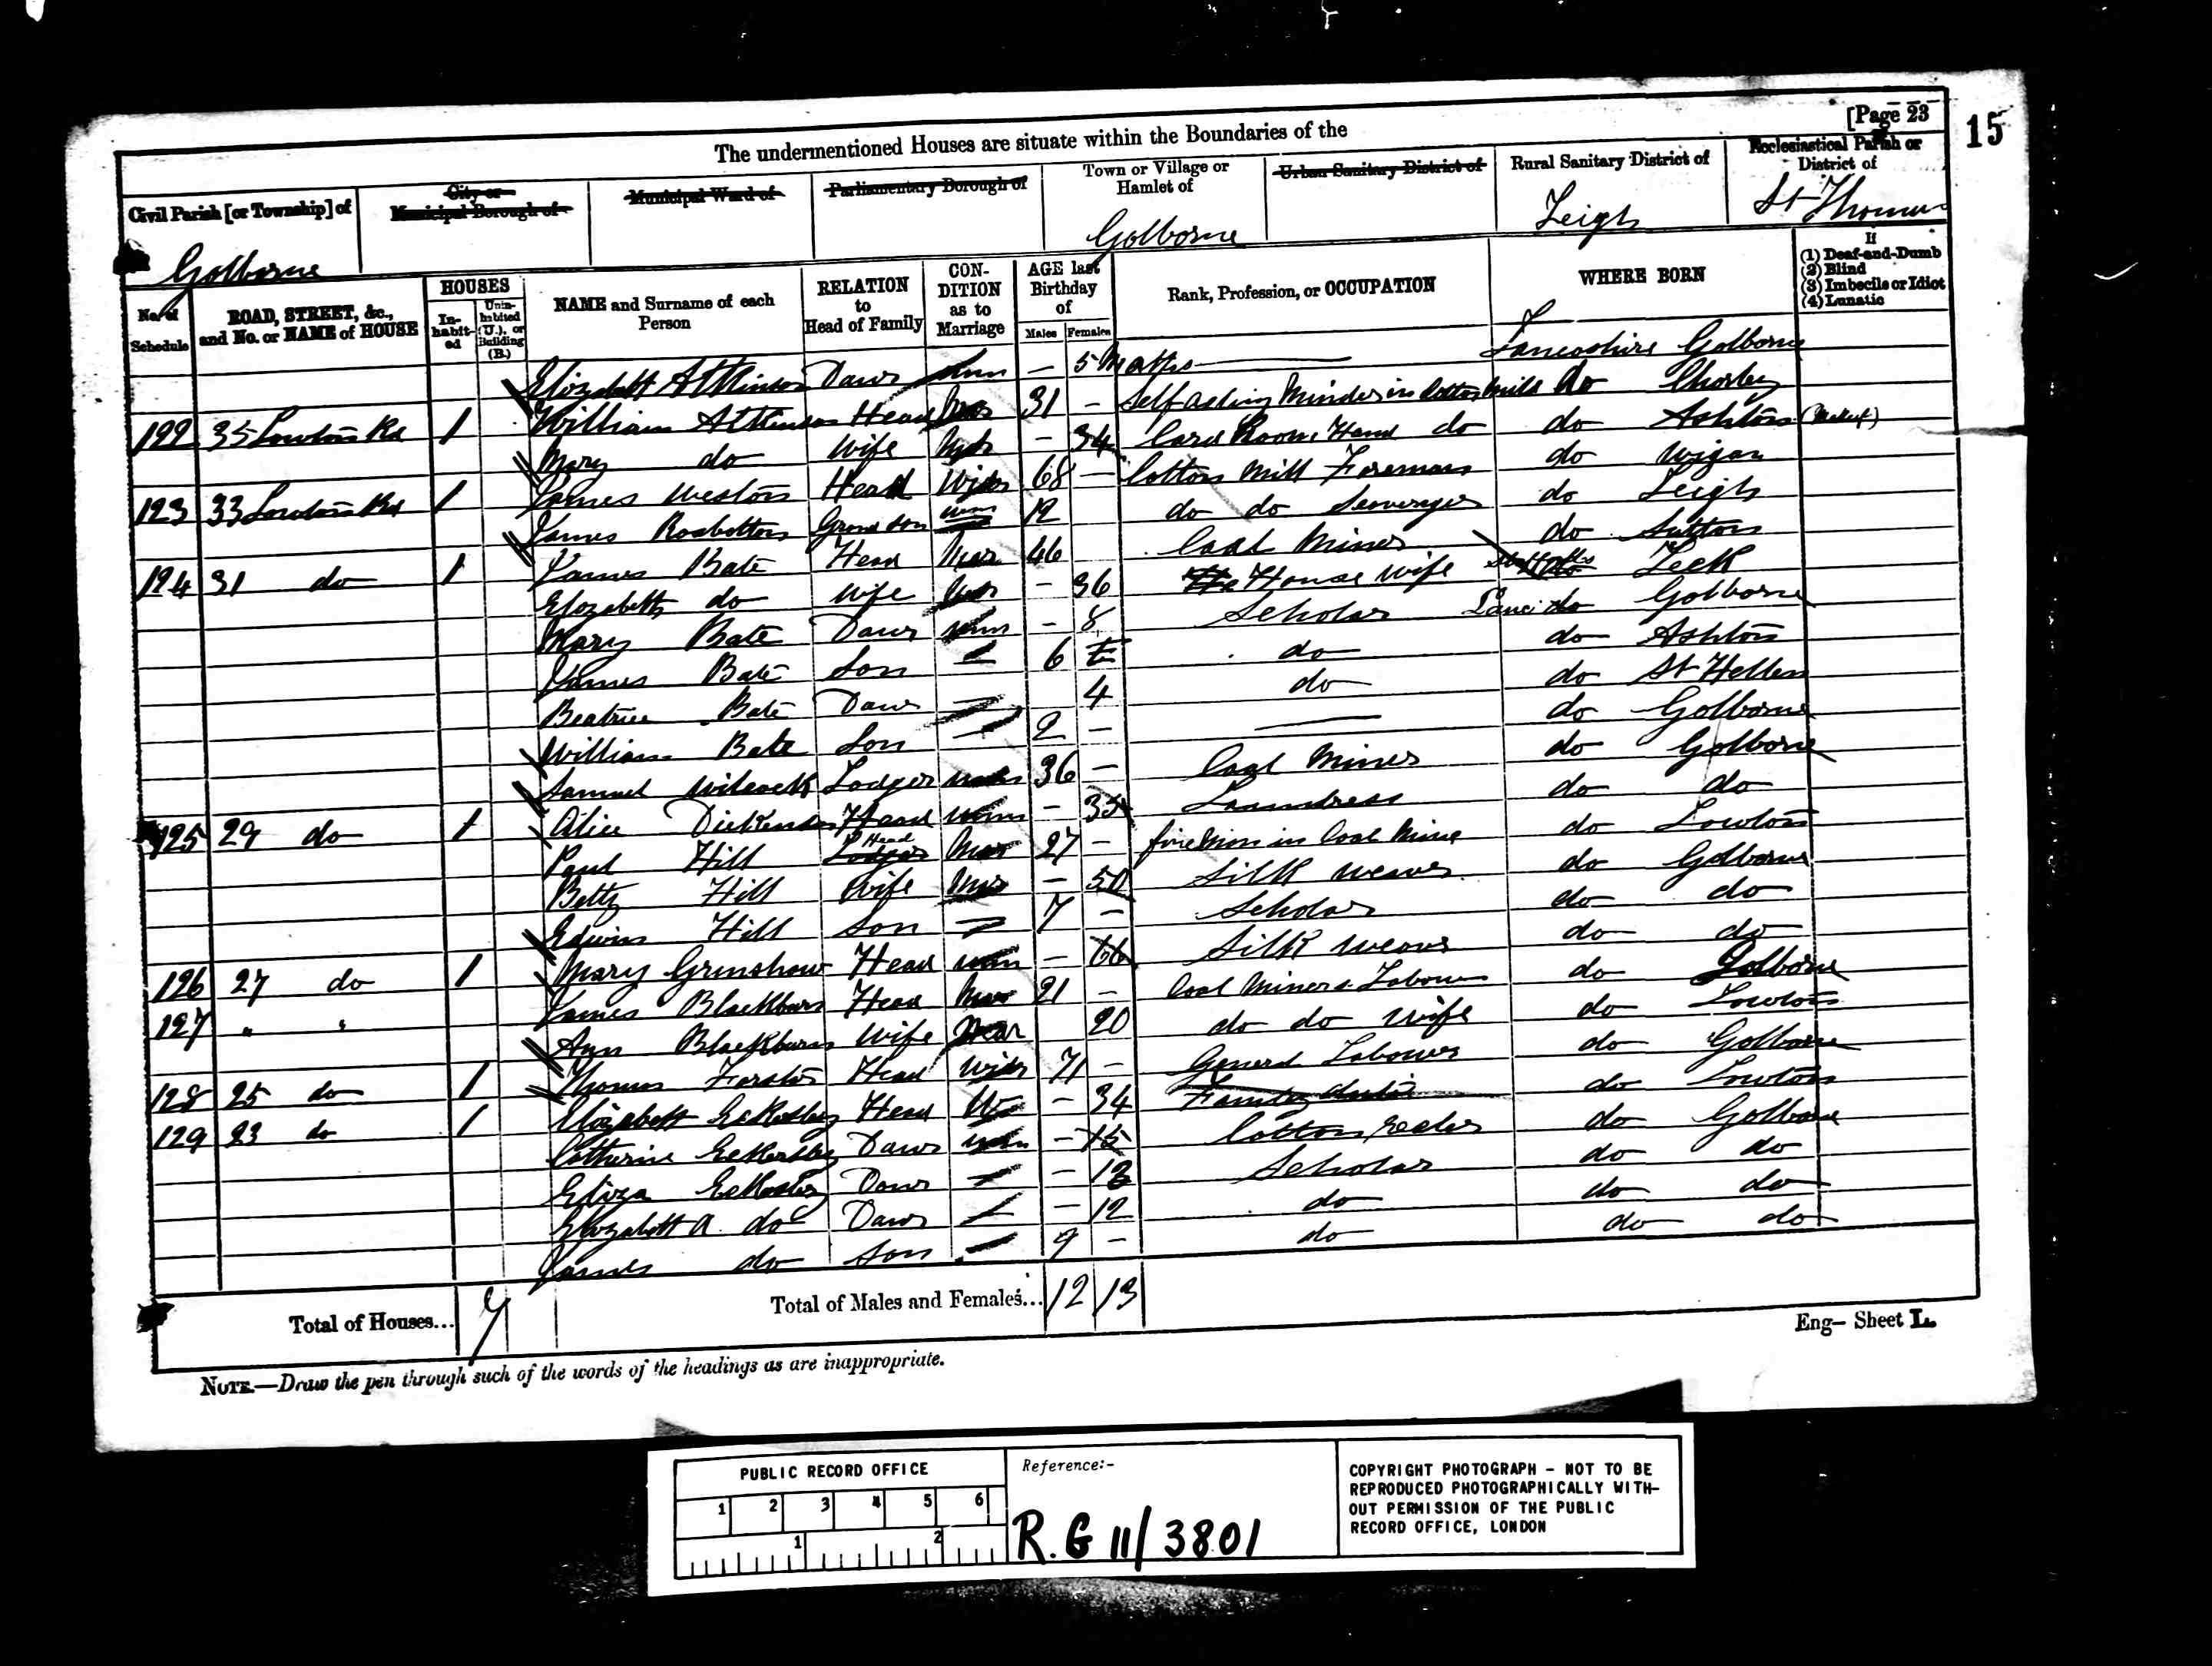 [Page 23
15
The undermentioned Houses are situate within the Boundaries of the
Civil Parish [or Township] of
City or Municipal Borough of
Municipal Ward of
Parliamentary Borough of
Town or Village or Hamlet of
Urban Sanitary District of
Rural Sanitary District of
Ecclesiastical Parish or District of
Golborne Golborne Leigh St Thomas
No. of Schedule
ROAD, STREET, &c., and No. or NAME of HOUSE
HOUSES
In-habit-ed
Unin-habited (U.), or Building (B.)
NAME and Surname of each Person
RELATION to Head of Family
CON-DITION as to Marriage
AGE last Birthday of
Males Females
Rank, Profession, or OCCUPATION
WHERE BORN
If
(1) Deaf-and-Dumb
(2) Blind
(3) Imbecile or Idiot
(4) Lunatic
Elizabeth Atkinson Daur unm – 5 Mths Lancashire Golborne
122 35 Lowton Rd 1 William Atkinson Head Mar 31 – Self acting Minder in Cotton Mill do Chorley
Mary do Wife Mar – 34 Card Room Hand do do Ashton
123 33 Lowton Rd 1 James Weston Head Widr 68 – Cotton Mill Foreman do Wigan
James Rosbottom Grandson unm 12 do do Scavenger do Leigh
124 31 do 1 James Bate Head Mar 46 Coal Miner do Sutton
Elizabeth do Wife Mar – 36 House Wife Leek
Mary Bate Daur unm – 8 Scholar Lanc Golborne
James Bate Son 6 do do Ashton
Beatrice Bate Daur 4 do do St Hellens
William Bate Son 2 – do Golborne
Samuel Wilcock Lodger unm 36 – Coal Miner do Golborne
125 29 do 1 Alice Dickenson Head unm – 35 Laundress do do
Paul Hill Lodger Head Mar 27 – fireman in Coal Mine do Lowton
Betty Hill Wife Mar – 50 Silk Weaver do Golborne
Edwin Hill Son 7 – Scholar do do
126 27 do 1 Mary Grimshaw Head unm – 66 Silk Weaver do do
127 " " James Blackburn Head Mar 21 – Coal Miners Labourer do Golborne
Ann Blackburn Wife Mar 20 do do wife do Lowton
128 25 do 1 Thomas Forster Head Widr 71 – General Labourer do Golborne
129 23 do 1 Elizabeth Eckersley Head – 34 do Lowton
Catherine Eckersley Daur unm – 15 Cotton do Golborne
Eliza Eckersley Daur – Scholar do do
Elizabeth A. do Daur – 12 do do do
James do Son 9 – do do do
Total of Houses... 7
Total of Males and Females... 12 13
Eng– Sheet L.
NOTE.—Draw the pen through such of the words of the headings as are inappropriate.
PUBLIC RECORD OFFICE
1 2 3 4 5 6
1 2
Reference:-
R.G 11/3801
COPYRIGHT PHOTOGRAPH – NOT TO BE
REPRODUCED PHOTOGRAPHICALLY WITH-
OUT PERMISSION OF THE PUBLIC
RECORD OFFICE, LONDON